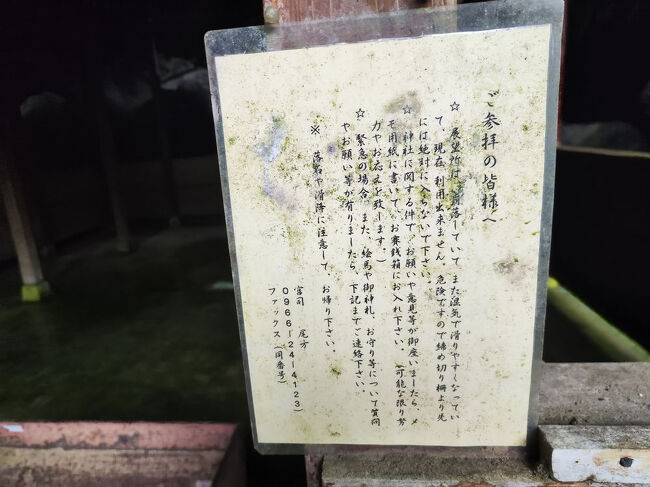 ご参拝の皆様へ
☆ 展望所は崩落していて、また湿気で滑りやすくなってい
て、現在、利用出来ません。危険ですので締め切り柵より先
には絶対に入らないで下さい。
☆ 神社に関する件で、お願いや意見等が御座いましたら、メ
モ用紙に書いて、お賽銭箱にお入れ下さい。(可能な限り労
力やお応えを致します。)
☆ 緊急の場合、また、絵馬や御神札、お守り等について質問
やお願い等が有りましたら、下記までご連絡下さい。
※ 落石や滑落に注意して、お帰り下さい。
宮司 尾方
0966-24-4123)
ファックス(同番号)